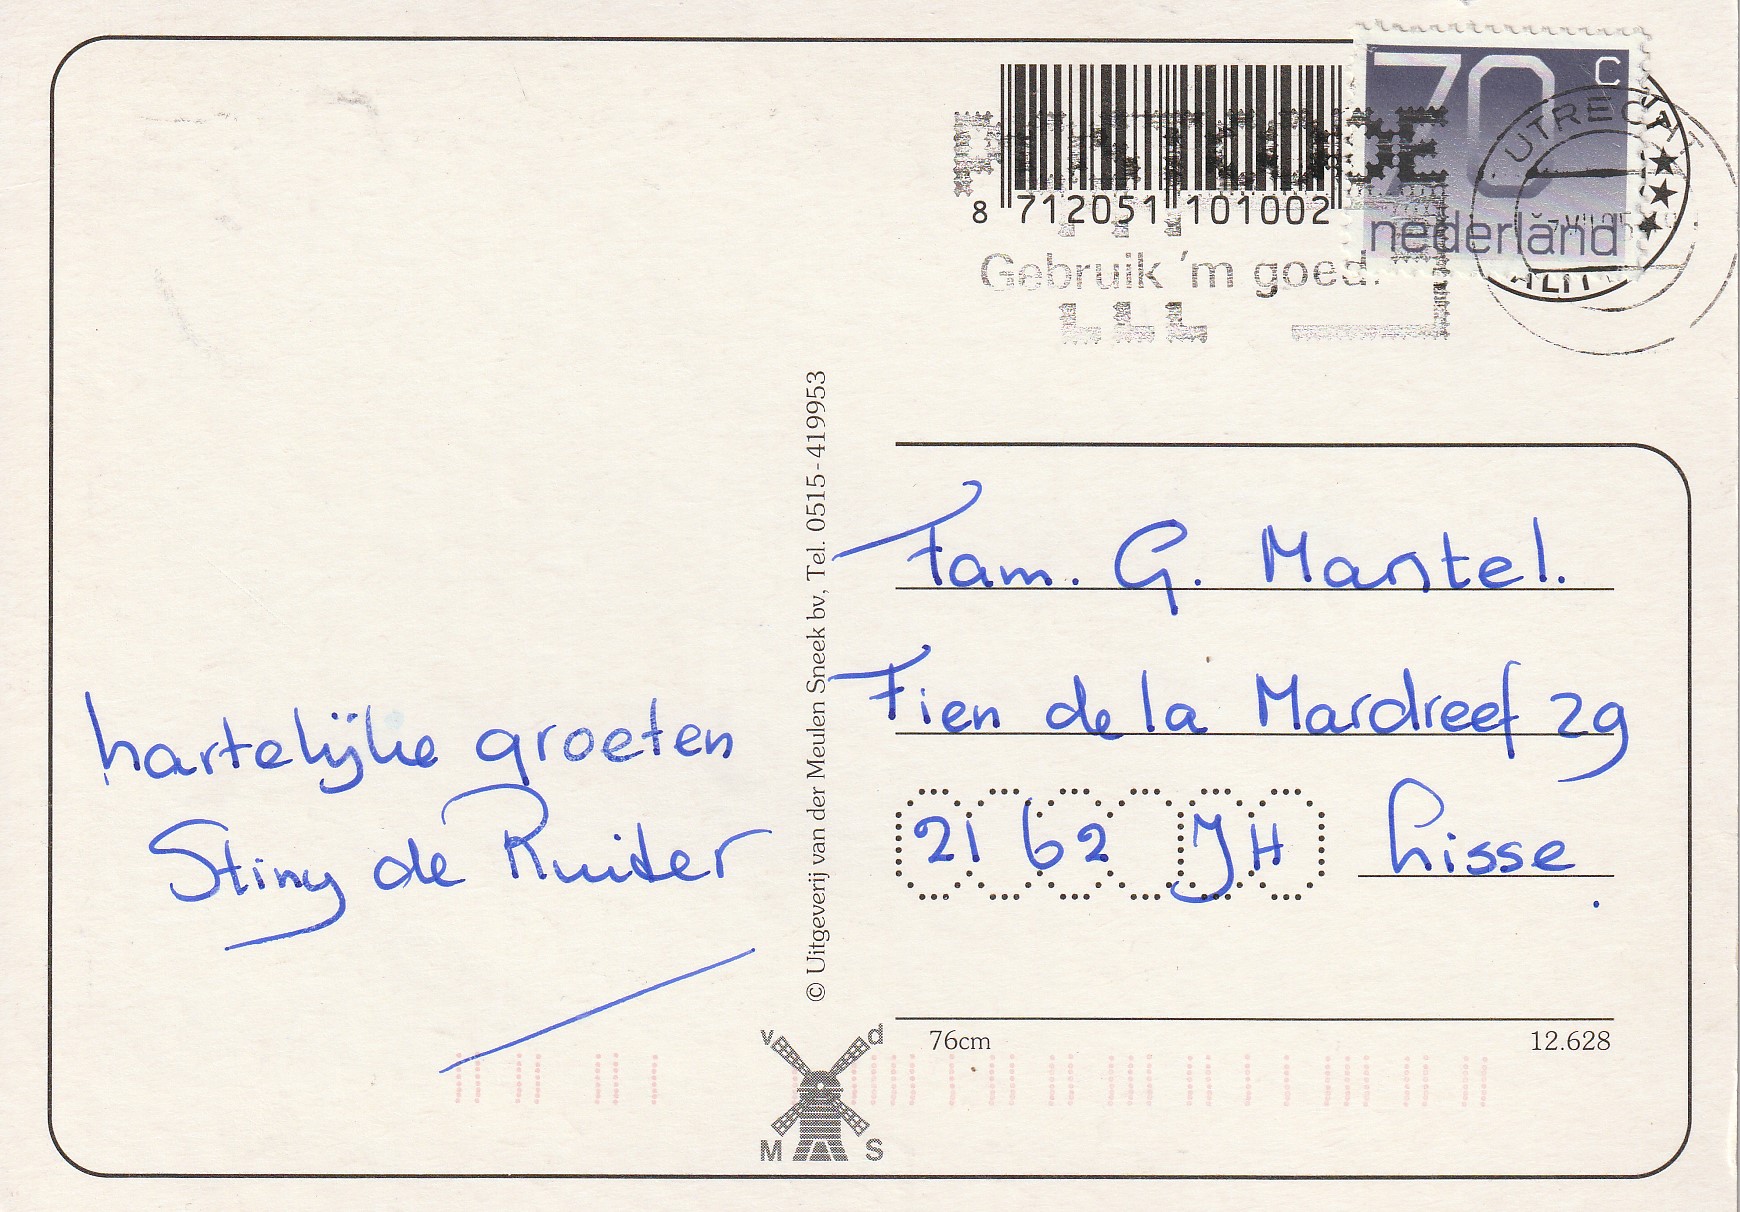 70 c
nederland
UTRECHT
8 712051 101002
Gebruik 'm goed.
© Uitgeverij van der Meulen Sneek bv, Tel. 0515-419953
hartelijke groeten
Stiny de Ruiter
Fam. G. Mantel.
Fien de la Mardreef 29
2162 JH Lisse.
76cm
12.628
v d
M S